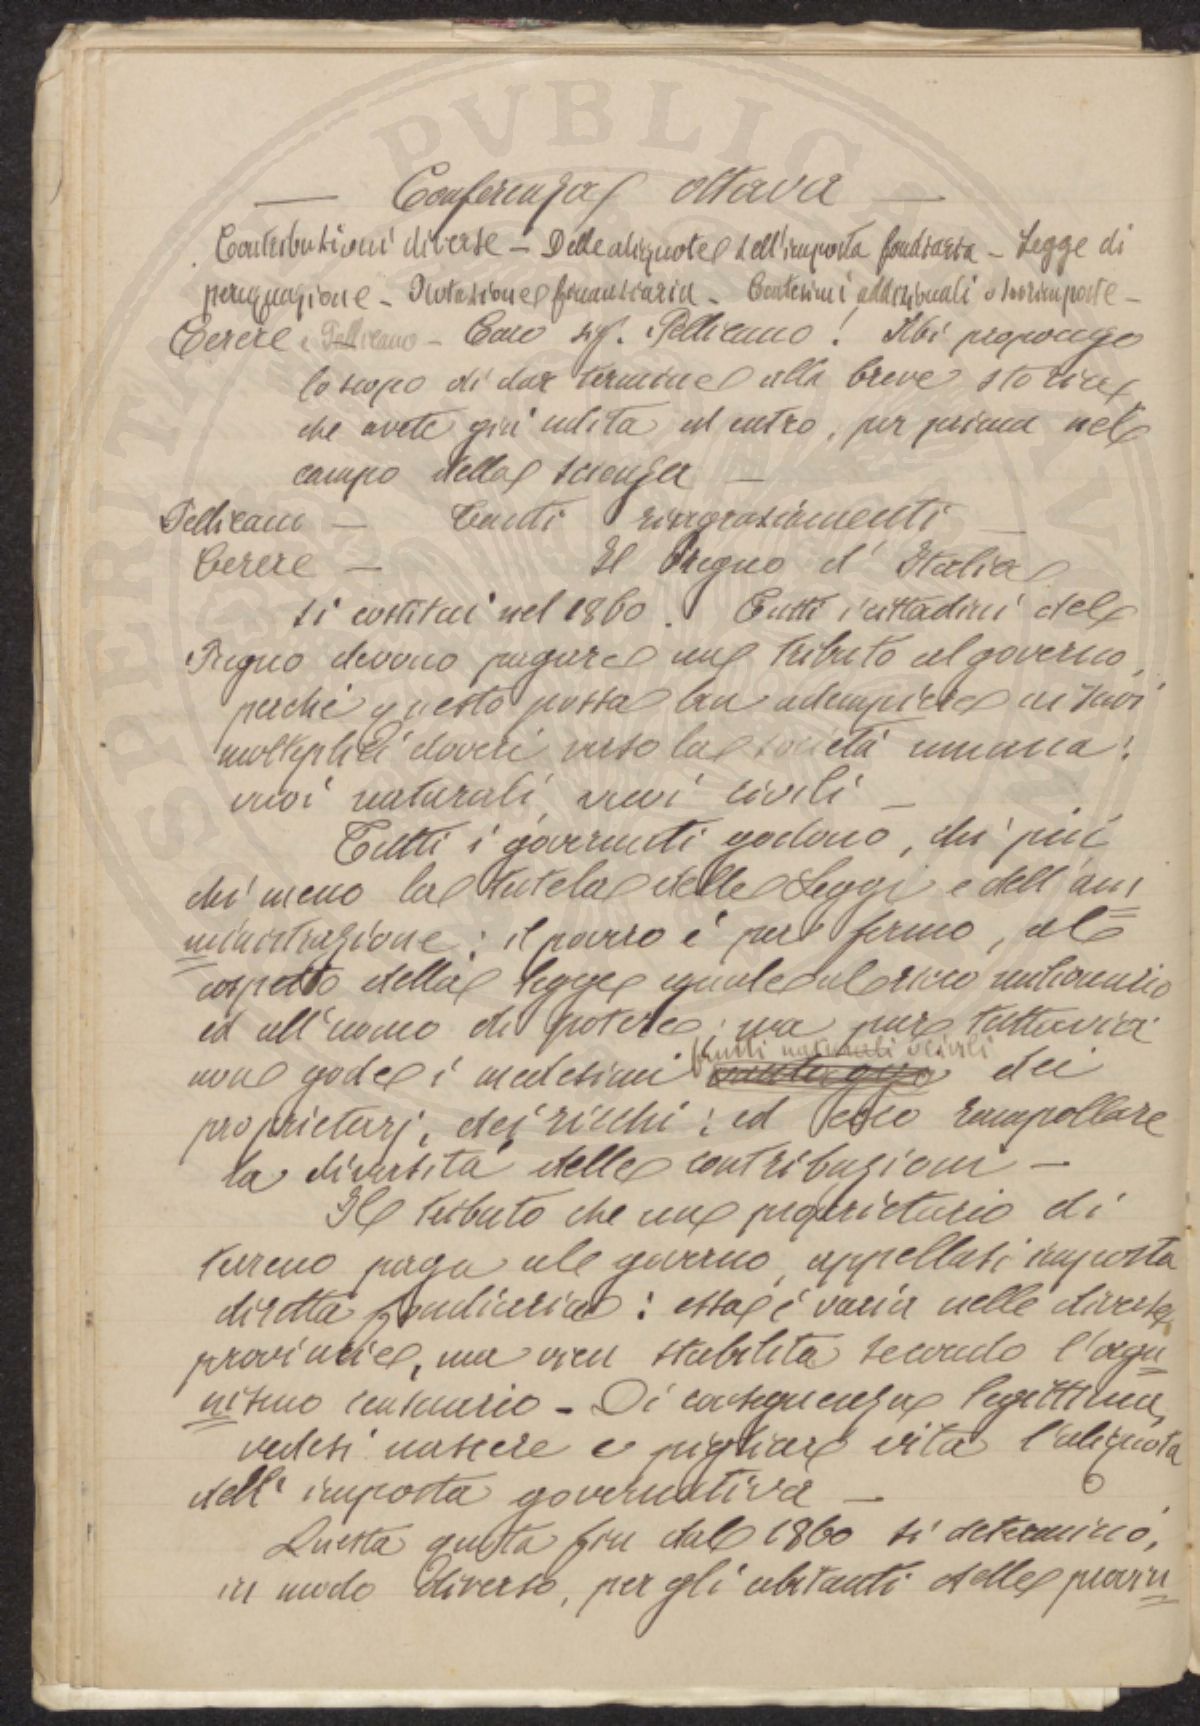 — Conferenza ottava —
Contribuzioni diverse – Delle aliquote dell'imposta fondiaria – Legge di
perequazione – Notazione finanziaria – Centesimi addizionali o sovrimposte –
Cerere e Pellicano – Caro sig. Pellicano! Mi propongo
lo scopo di dar termine alla breve storia,
che avete già udita ed entro, per prima nel
campo della scienza –
Pellicano – Tanti ringraziamenti –
Cerere – Il Regno d'Italia
si costituì nel 1860. Tutti i cittadini del
Regno devono pagare un tributo al governo,
perchè questo possa ben adempiere ai suoi
molteplici doveri verso la società umana:
naturali, civili –
Tutti i governati godono, chi più
chi meno la tutela delle Leggi e dell'am=
ministrazione: il povero è per fermo, al
cospetto della legge eguale al ricco milionario
ed all'uomo di potere; ma pure tuttavia
frutti naturali e civili
non gode i medesimi vantaggi dei
proprietarj, dei ricchi: ed ecco rampollare
la diversità delle contribuzioni –
Il tributo che un proprietario di
terreno paga al governo, appellasi imposta
diretta fondiaria: essa è varia nelle diverse
provincie, ma vien stabilita secondo l'orga=
nismo censuario – Di conseguenza legittima,
vedesi nascere e pigliare vita l'aliquota
dell'imposta governativa –
Questa quota fin dal 1860 si determinò,
in modo diverso, per gli abitanti delle provin=